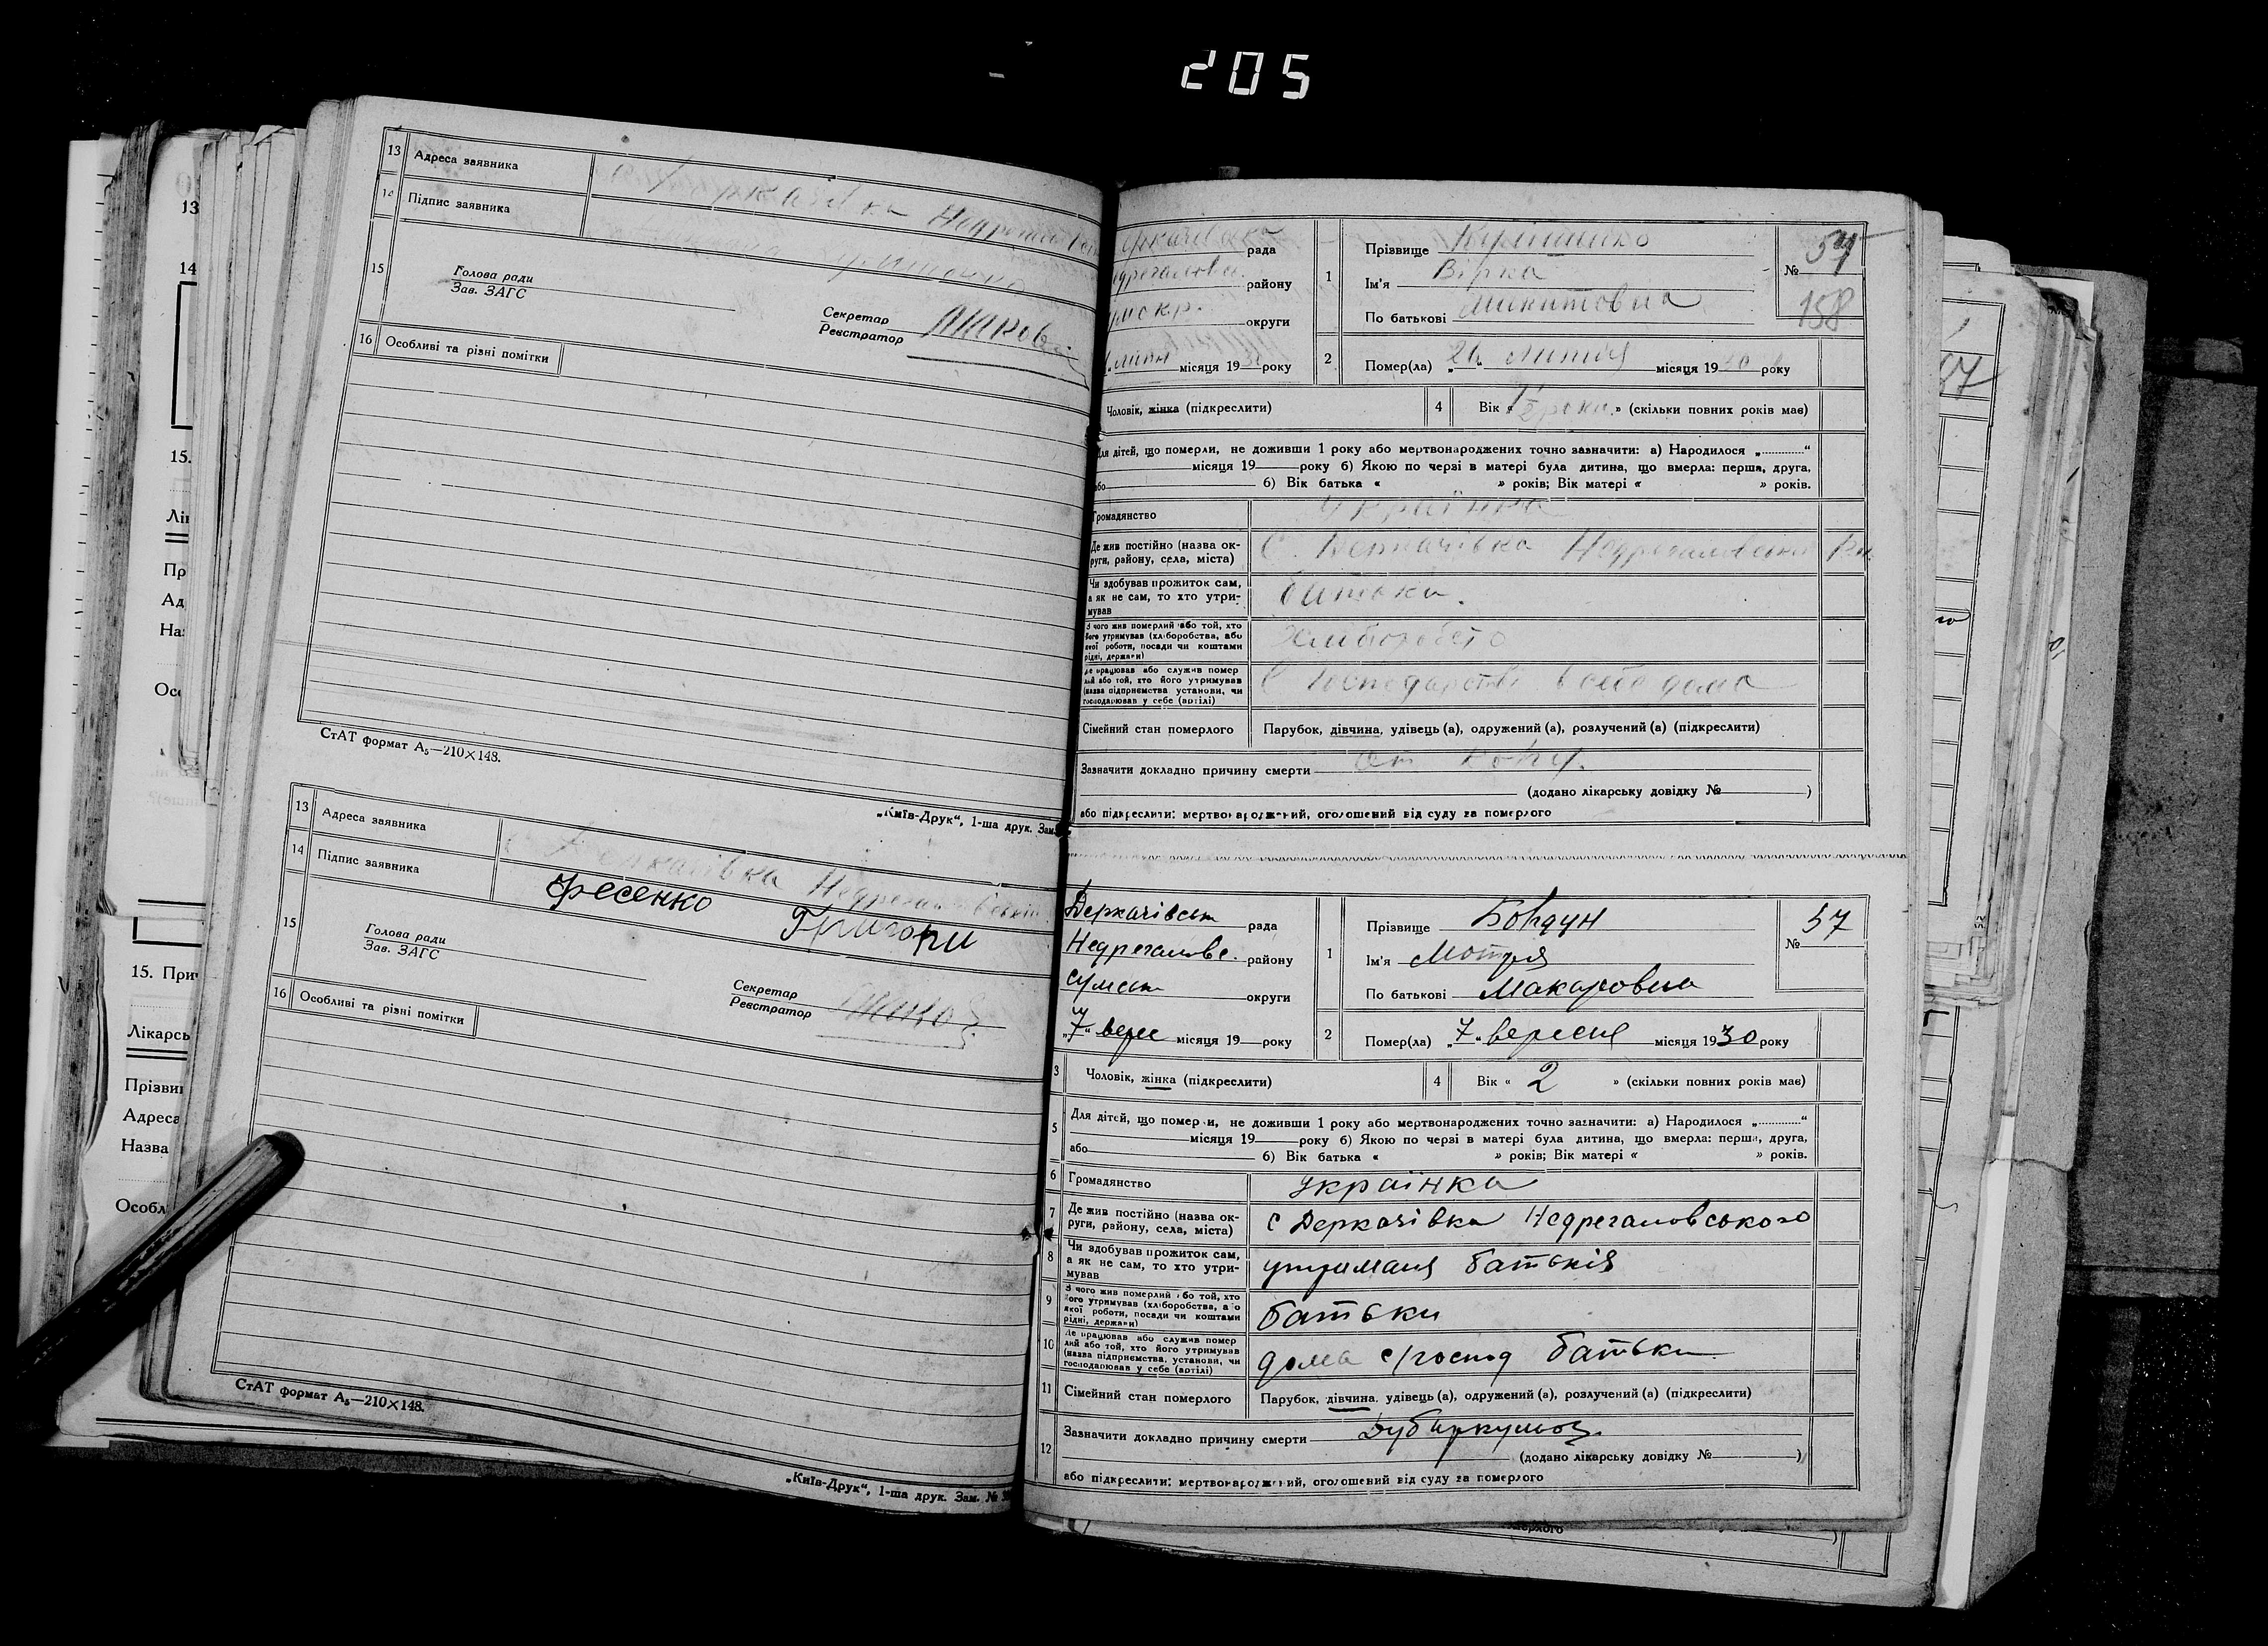 205
13 Адреса заявника
14 Підпис заявника
15 Голова ради
Зав. ЗАГС
Секретар
Реєстратор
16 Особливі та різні помітки
СтАТ формат А₅—210×148.
„Київ-Друк“, 1-ша друк. Зам.
13 Адреса заявника Деркачівка
14 Підпис заявника Фесенко Григори
15 Голова ради
Зав. ЗАГС
Секретар
Реєстратор
16 Особливі та різні помітки
СтАТ формат А₅—210×148.
„Київ-Друк“, 1-ша друк. Зам. №
рада
району
округи
місяця 19 року
1 Прізвище
Ім'я Вірка
По батькові Микитовна
№ 57
158
2 Помер(ла) „26“ місяця 1930 року
Чоловік, жінка (підкреслити)
4 Вік « » (скільки повних років має)
Для дітей, що померли, не доживши 1 року або мертвонароджених точно зазначити: а) Народилося „ “
місяця 19 року б) Якою по черзі в матері була дитина, що вмерла: перша, друга,
або б) Вік батька « » років; Вік матері « » років.
Громадянство Українка
Де жив постійно (назва ок-
руги, району, села, міста) С. Деркачівка Недрегаловського Рн.
Чи здобував прожиток сам,
а як не сам, то хто утри-
мував батьки.
З чого жив померлий або той, хто
його утримував (хліборобства, або
якої роботи, посади чи коштами
рідні, держави)
Де працював або служив помер
лий або той, хто його утримував
(назва підприємства установи, чи
господарював у себе (артілі)
Сімейний стан померлого Парубок, дівчина, удівець (а), одружений (а), розлучений (а) (підкреслити)
Зазначити докладно причину смерти От
(додано лікарську довідку № )
або підкреслити: мертвонароджений, оголошений від суду за померлого
Деркачівськ рада
Недрегаловс. району
Сумськ округи
„7“ верес місяця 19 року
1 Прізвище
Ім'я Мотря
По батькові Макаровна
№ 57
2 Помер(ла) „7“ вересня місяця 1930 року
3 Чоловік, жінка (підкреслити)
4 Вік « 2 » (скільки повних років має)
5 Для дітей, що померли, не доживши 1 року або мертвонароджених точно зазначити: а) Народилося „ “
місяця 19 року б) Якою по черзі в матері була дитина, що вмерла: перша, друга,
або б) Вік батька « » років; Вік матері « » років.
6 Громадянство українка
7 Де жив постійно (назва ок-
руги, району, села, міста) с Деркачівка Недрегаловського
8 Чи здобував прожиток сам,
а як не сам, то хто утри-
мував утриманя батьків
9 З чого жив померлий або той, хто
його утримував (хліборобства, або
якої роботи, посади чи коштами
рідні, держави) батьки
10 Де працював або служив помер
лий або той, хто його утримував
(назва підприємства, установи, чи
господарював у себе (артілі) дома с/господ батьки
11 Сімейний стан померлого Парубок, дівчина, удівець (а), одружений (а), розлучений (а) (підкреслити)
12 Зазначити докладно причину смерти
(додано лікарську довідку № )
або підкреслити: мертвонароджений, оголошений від суду за померлого